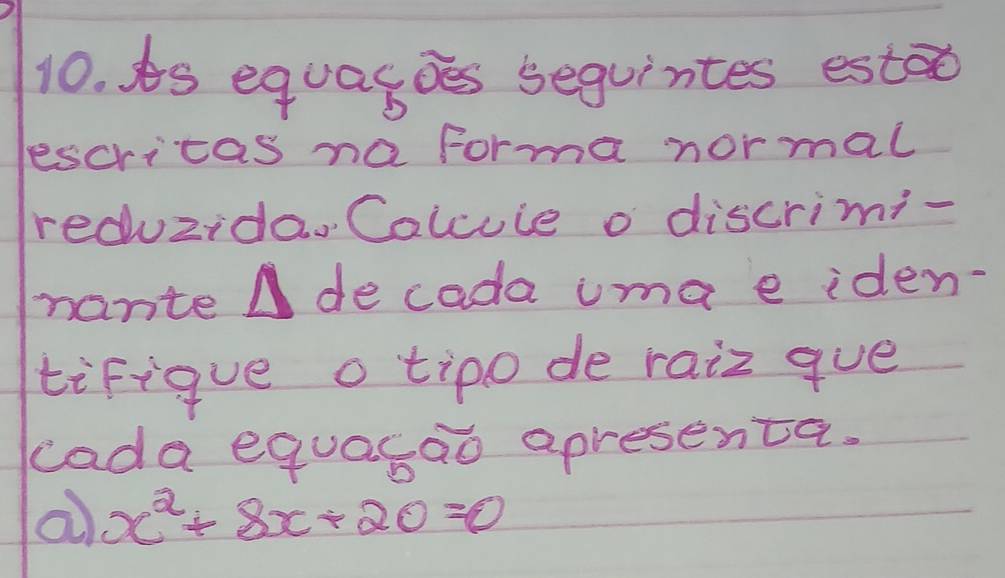 10. As equações seguintes estão
escritas na Forma normal
reduzida. Calcule o discrimi-
nante Δ de cada uma e iden-
tifique o tipo de raiz que
cada equação apresenta.
a) x² + 8x + 20 = 0